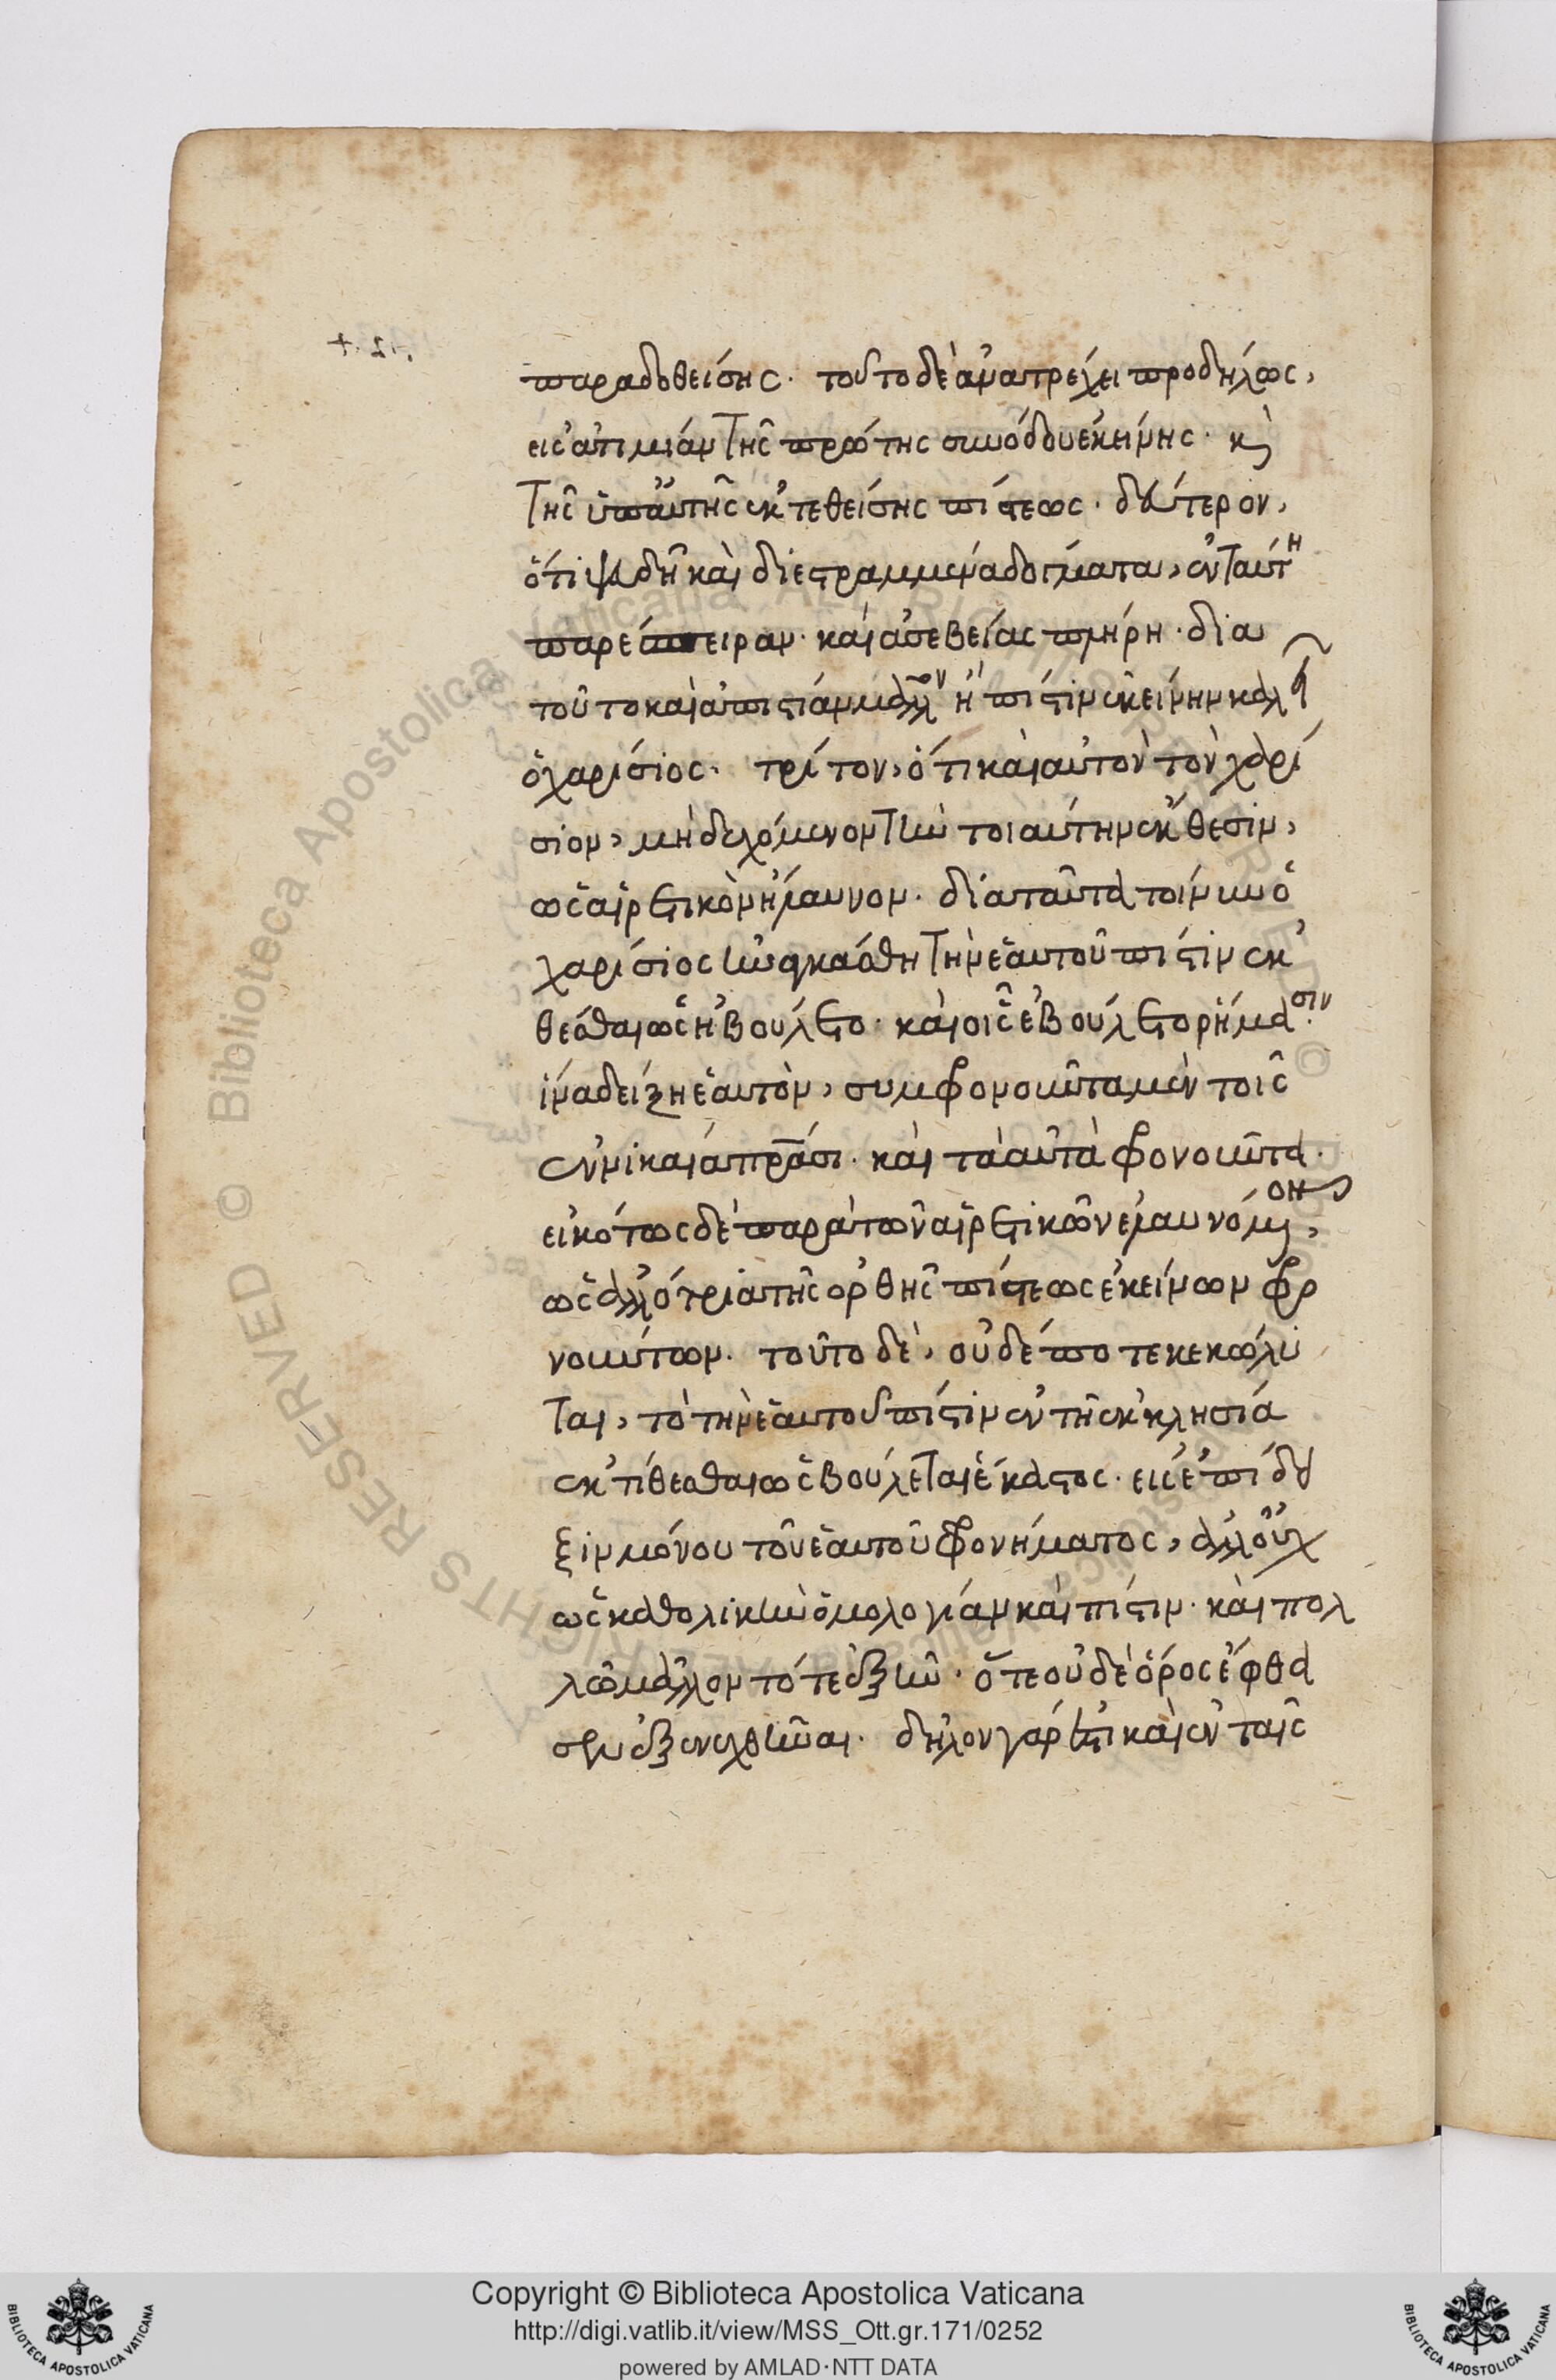 παραδοθείσης. τοῦτο δὲ ἀνατρέχει προδήλως,
εἰς ἀτιμίαν τῆς πρώτης συνόδου ἐκείνης. κὶ
τῆς ὑπ' αὐτῆς ἐκτεθείσης πίστεως. δεύτερον,
ὅτι ψευδῆ καὶ διεστραμμένα δόγματα, ἐν ταύτη
παρέσπειραν. καὶ ἀσεβείας πλήρη. διὰ
τοῦτο καὶ ἀπιστίαν μᾶλλον ἢ πίστιν ἐκείνην καλεῖ
ὁ χαρίσιος. τρίτον, ὅτι καὶ αὐτὸν τὸν χαρί
σιον, μὴ δεχόμενον τὴν τοιαύτην ἔκθεσιν,
ὡς αἱρετικὸν ἤλαυνον. διὰ ταῦτα τοίνυν ὁ
χαρίσιος ἠναγκάσθη τὴν ἑαυτοῦ πίστιν ἐκ
θέσθαι ὡς ἠβούλετο. καὶ οἷς ἐβούλετο ῥήμασιν.
ἵνα δείξη ἑαυτὸν, συμφρονοῦντα μὲν τοῖς
ἐν νικαία πρᾶσι. καὶ τὰ αὐτὰ φρονοῦντα.
εἰκότως δὲ παρὰ τῶν αἱρετικῶν ἐλαυνόμενον,
ὡς ἀλλότρια τῆς ὀρθῆς πίστεως ἐκείνων φρο
νούντων. τοῦτο δὲ, οὐδέποτε κεκώλυ
ται, τὸ τὴν ἑαυτοῦ πίστιν ἐν τῆ ἐκκλησία
ἐκτίθεσθαι ὡς βούλεται ἕκαστος. εἰς ἐπίδει
ξιν μόνου τοῦ ἑαυτοῦ φρονήματος, ἀλλ' οὐχ
ὡς καθολικὴν ὁμολογίαν καὶ πίστιν. καὶ πολ
λῶ μᾶλλον τότε ἐξῆν. ὅτε οὐδὲ ὅρος ἔφθα
σεν ἐξενεχθῆναι. δῆλον γὰρ ἐστὶ καὶ ἐν ταῖς
Copyright © Biblioteca Apostolica Vaticana
http://digi.vatlib.it/view/MSS_Ott.gr.171/0252
powered by AMLAD·NTT DATA